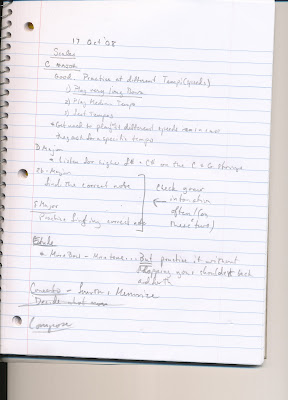 17 Oct '08
Scales
C Major
Good. Practice at different Tempi (speeds)
1) Play very Long Bows
2) Play Medium Tempo
3) Fast Tempos
* Get used to play at different speeds
for a specific tempo
D Major
* Listen for higher F# + C# on the C & G Strings
Major
find the correct note
F Major
Practice finding correct note
Check your
intonation
often (on
these two)
Etude
* More Bow - More tone... But practice it without
your shoulder back
and forth
Concerto - Smooth + Memorize
Decide what
Compose